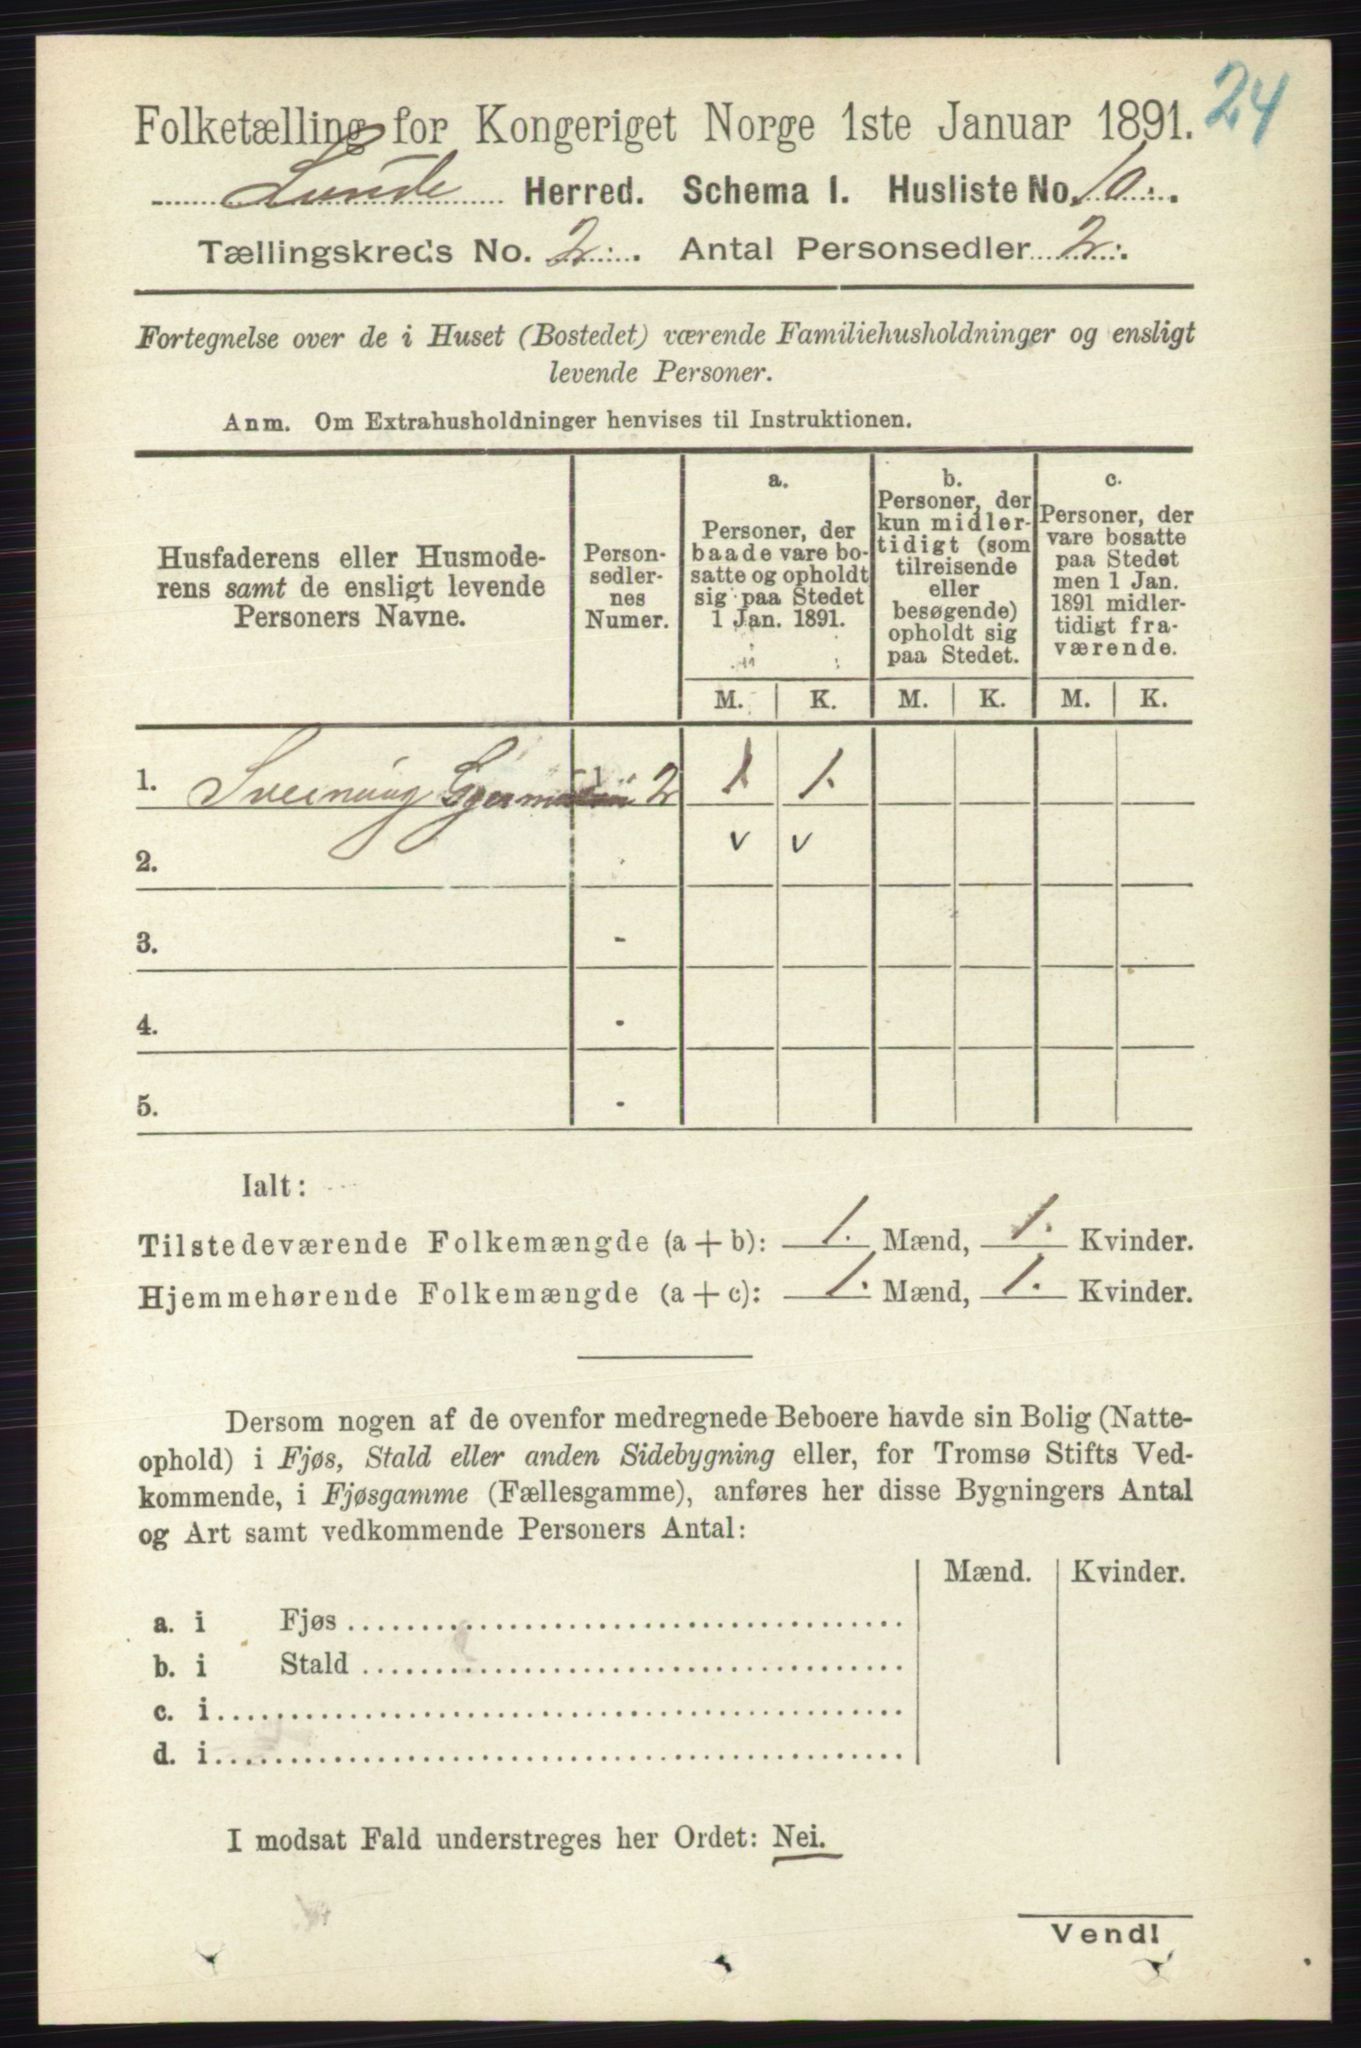 24
Folketælling for Kongeriget Norge 1ste Januar 1891.
Lunde Herred. Schema I. Husliste No. 10.
Tællingskreds No. 2. Antal Personsedler 2.
Fortegnelse over de i Huset (Bostedet) værende Familiehusholdninger og ensligt
levende Personer.
Anm. Om Extrahusholdninger henvises til Instruktionen.
Husfaderens eller Husmode-
rens samt de ensligt levende
Personers Navne.
Person-
sedler-
nes
Numer.
a.
Personer, der
baade vare bo-
satte og opholdt
sig paa Stedet
1 Jan. 1891.
b.
Personer, der
kun midler-
tidigt (som
tilreisende
eller
besøgende)
opholdt sig
paa Stedet.
c.
Personer, der
vare bosatte
paa Stedet
men 1 Jan.
1891 midler-
tidigt fra-
værende.
M. K. M. K. M. K.
1. Sveinung 1 2 1 1.
2. v v
3. -
4. -
5. -
Ialt:
Tilstedeværende Folkemængde (a + b): 1. Mænd, 1. Kvinder.
Hjemmehørende Folkemængde (a + c): 1. Mænd, 1. Kvinder.
Dersom nogen af de ovenfor medregnede Beboere havde sin Bolig (Natte-
ophold) i Fjøs, Stald eller anden Sidebygning eller, for Tromsø Stifts Ved-
kommende, i Fjøsgamme (Fællesgamme), anføres her disse Bygningers Antal
og Art samt vedkommende Personers Antal:
Mænd. Kvinder.
a. i Fjøs
b. i Stald
c. i
d. i
I modsat Fald understreges her Ordet: Nei.
Vend!